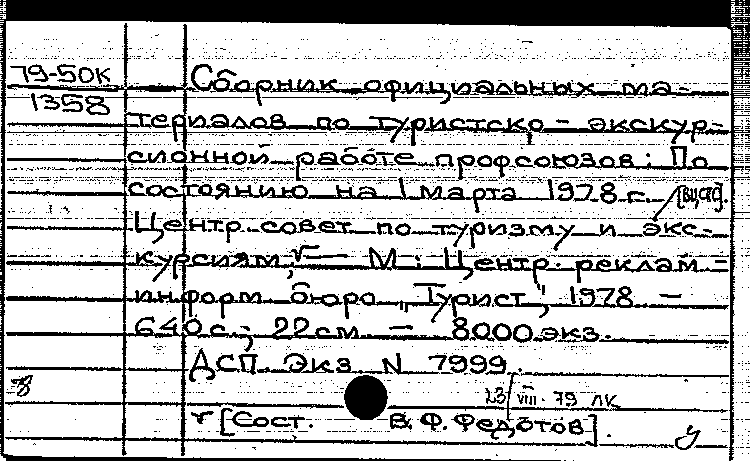 79-50к
1358
Сборник официальных ма-
териалов по туристско-экскур-
сионной работе профсоюзов: По
состоянию на 1 марта 1978 г. / [ВЦСПС].
Центр. совет по туризму и экс-
курсиям; — М.: Центр. реклам.-
информ. бюро „Турист“, 1978 —
640 с.; 22 см. — 8000 экз.
ДСП. Экз. N 7999.
23/VIII-79 ЛК
[Сост. В. Ф. Федотов].
у